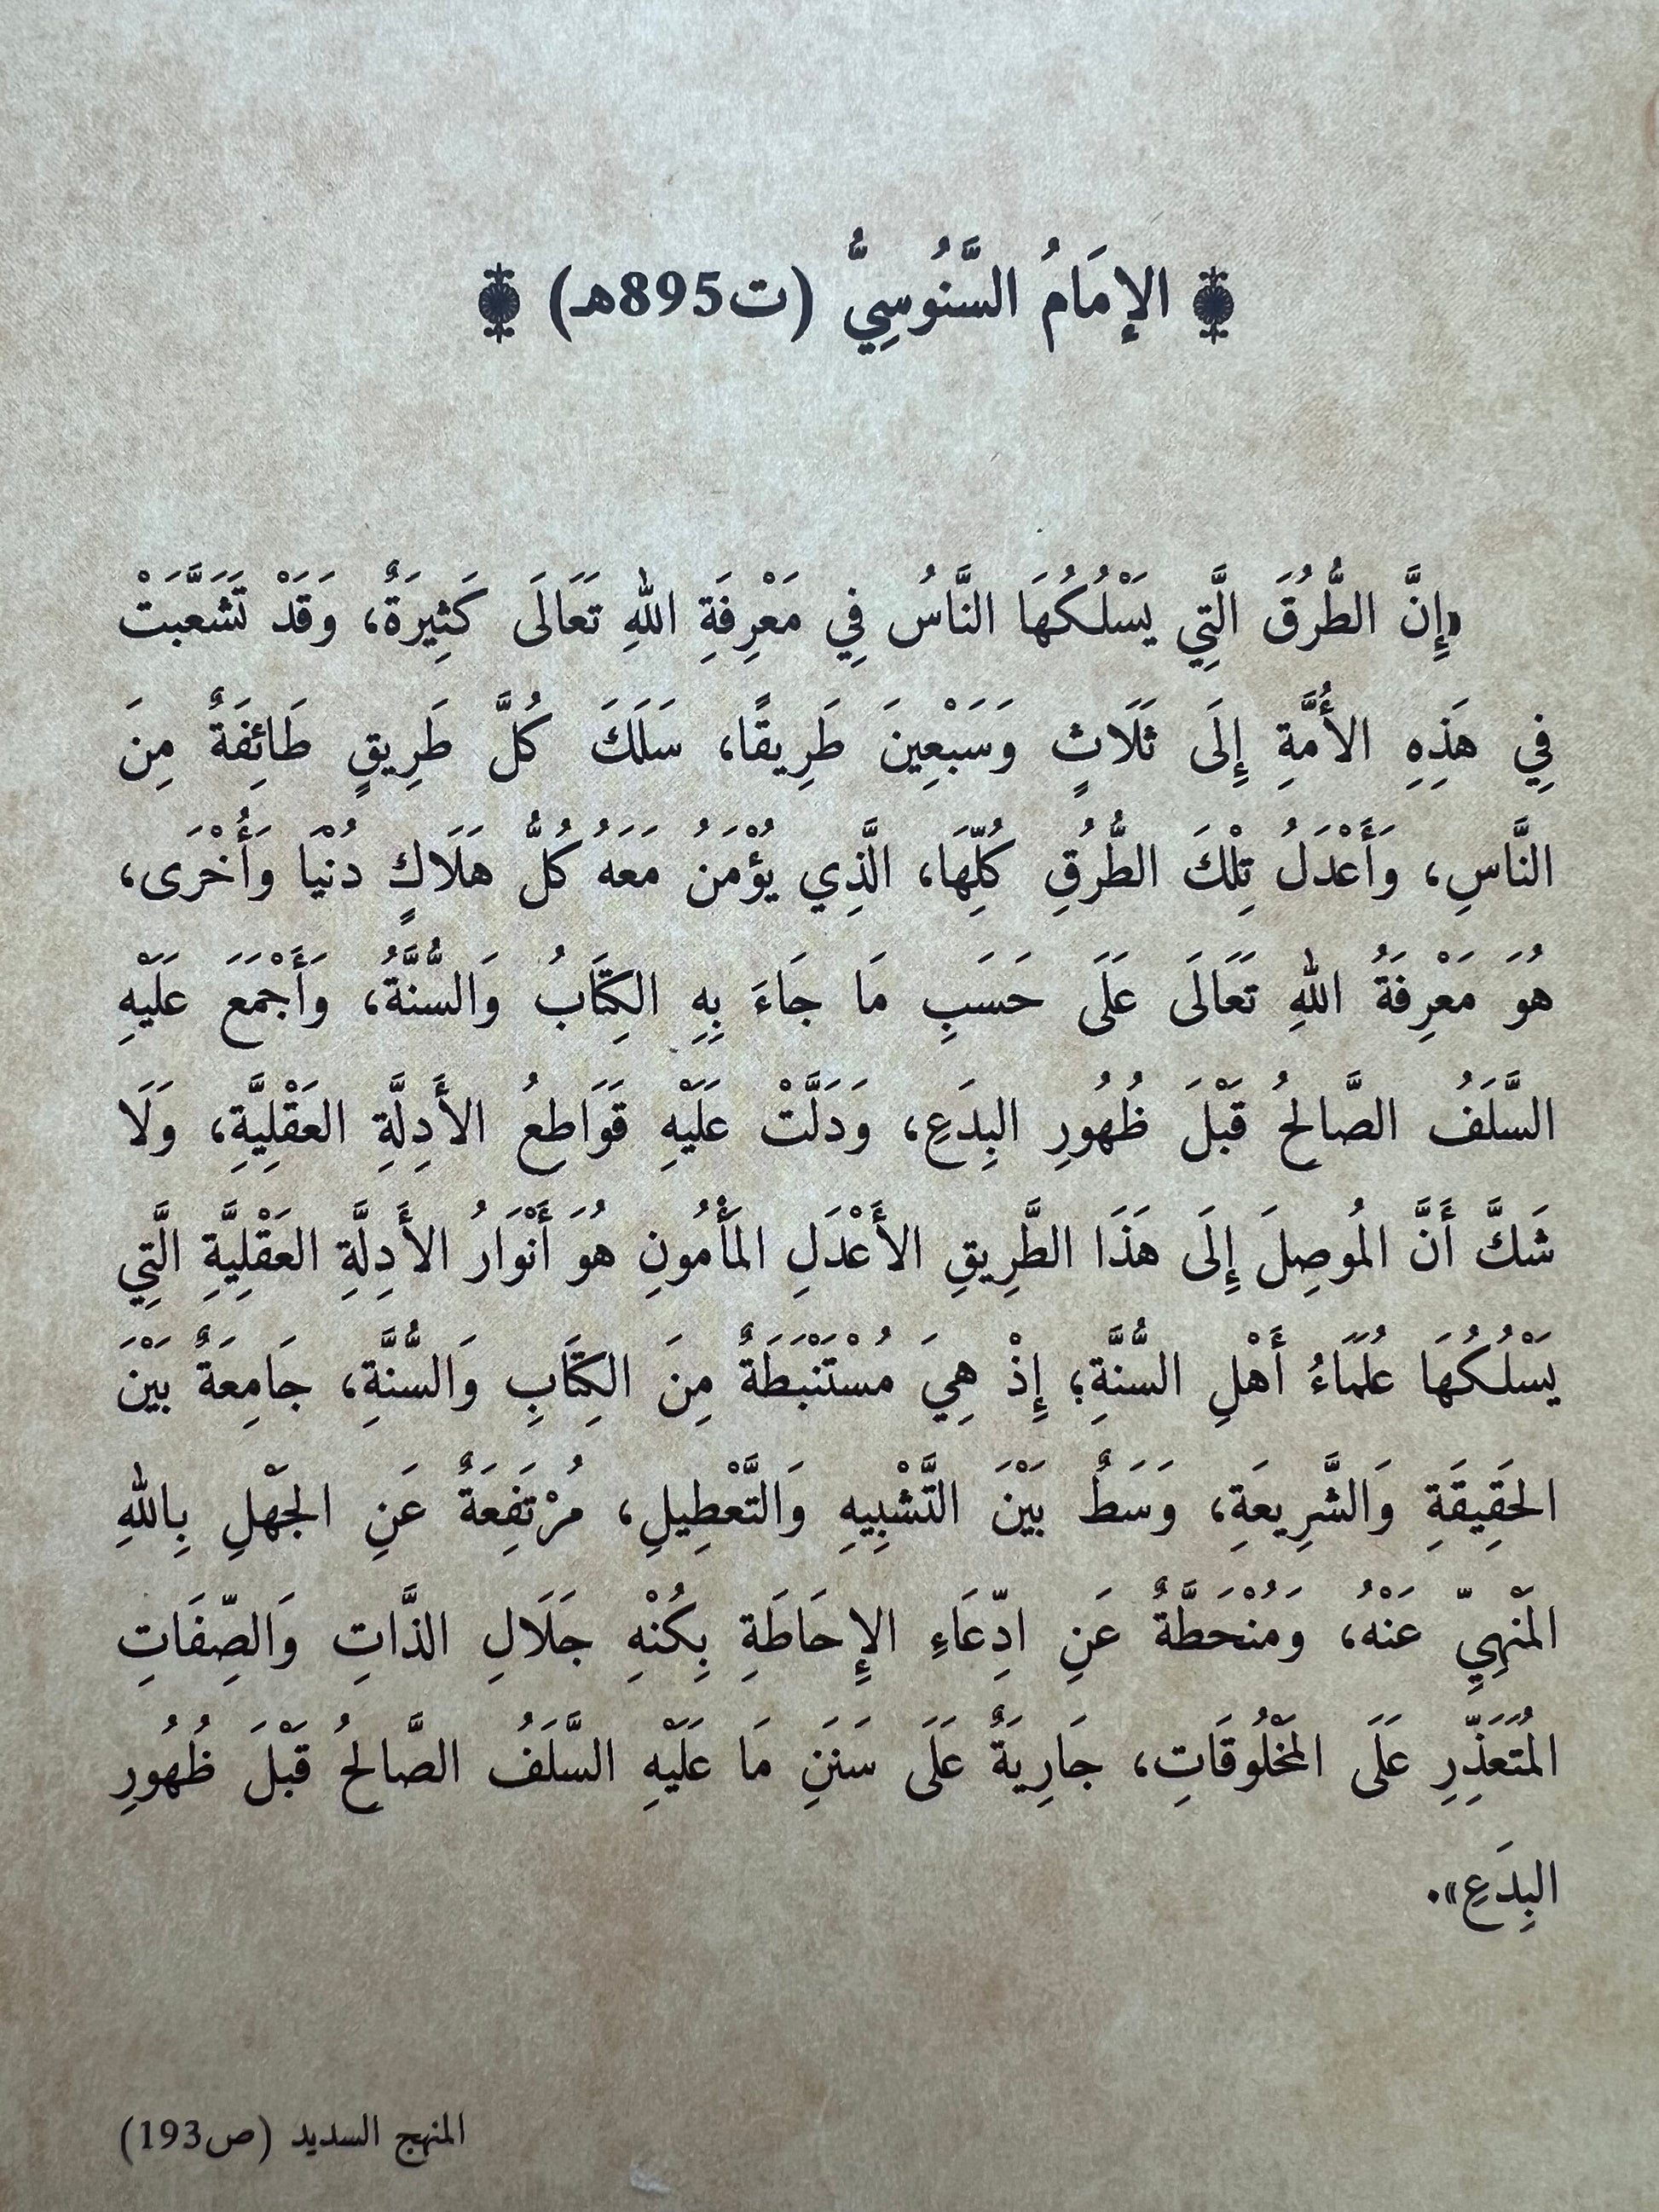 الإمَامُ السَّنُوسِيُّ (ت895هـ)
«إِنَّ الطُّرُقَ الَّتِي يَسْلُكُهَا النَّاسُ فِي مَعْرِفَةِ اللهِ تَعَالَى كَثِيرَةٌ، وَقَدْ تَشَعَّبَتْ
فِي هَذِهِ الأُمَّةِ إِلَى ثَلَاثٍ وَسَبْعِينَ طَرِيقًا، سَلَكَ كُلَّ طَرِيقٍ طَائِفَةٌ مِنَ
النَّاسِ، وَأَعْدَلُ تِلْكَ الطُّرُقِ كُلِّهَا، الَّذِي يُؤْمَنُ مَعَهُ كُلُّ هَلَاكٍ دُنْيَا وَأُخْرَى،
هُوَ مَعْرِفَةُ اللهِ تَعَالَى عَلَى حَسَبِ مَا جَاءَ بِهِ الكِتَابُ وَالسُّنَّةُ، وَأَجْمَعَ عَلَيْهِ
السَّلَفُ الصَّالِحُ قَبْلَ ظُهُورِ البِدَعِ، وَدَلَّتْ عَلَيْهِ قَوَاطِعُ الأَدِلَّةِ العَقْلِيَّةِ، وَلَا
شَكَّ أَنَّ المُوصِلَ إِلَى هَذَا الطَّرِيقِ الأَعْدَلِ المَأْمُونِ هُوَ أَنْوَارُ الأَدِلَّةِ العَقْلِيَّةِ الَّتِي
يَسْلُكُهَا عُلَمَاءُ أَهْلِ السُّنَّةِ؛ إِذْ هِيَ مُسْتَنْبَطَةٌ مِنَ الكِتَابِ وَالسُّنَّةِ، جَامِعَةٌ بَيْنَ
الحَقِيقَةِ وَالشَّرِيعَةِ، وَسَطٌ بَيْنَ التَّشْبِيهِ وَالتَّعْطِيلِ، مُرْتَفِعَةٌ عَنِ الجَهْلِ بِاللهِ
المَنْهِيِّ عَنْهُ، وَمُنْحَطَّةٌ عَنِ ادِّعَاءِ الإِحَاطَةِ بِكُنْهِ جَلَالِ الذَّاتِ وَالصِّفَاتِ
المُتَعَذِّرِ عَلَى المَخْلُوقَاتِ، جَارِيَةٌ عَلَى سَنَنِ مَا عَلَيْهِ السَّلَفُ الصَّالِحُ قَبْلَ ظُهُورِ
البِدَعِ».
المنهج السديد (ص193)